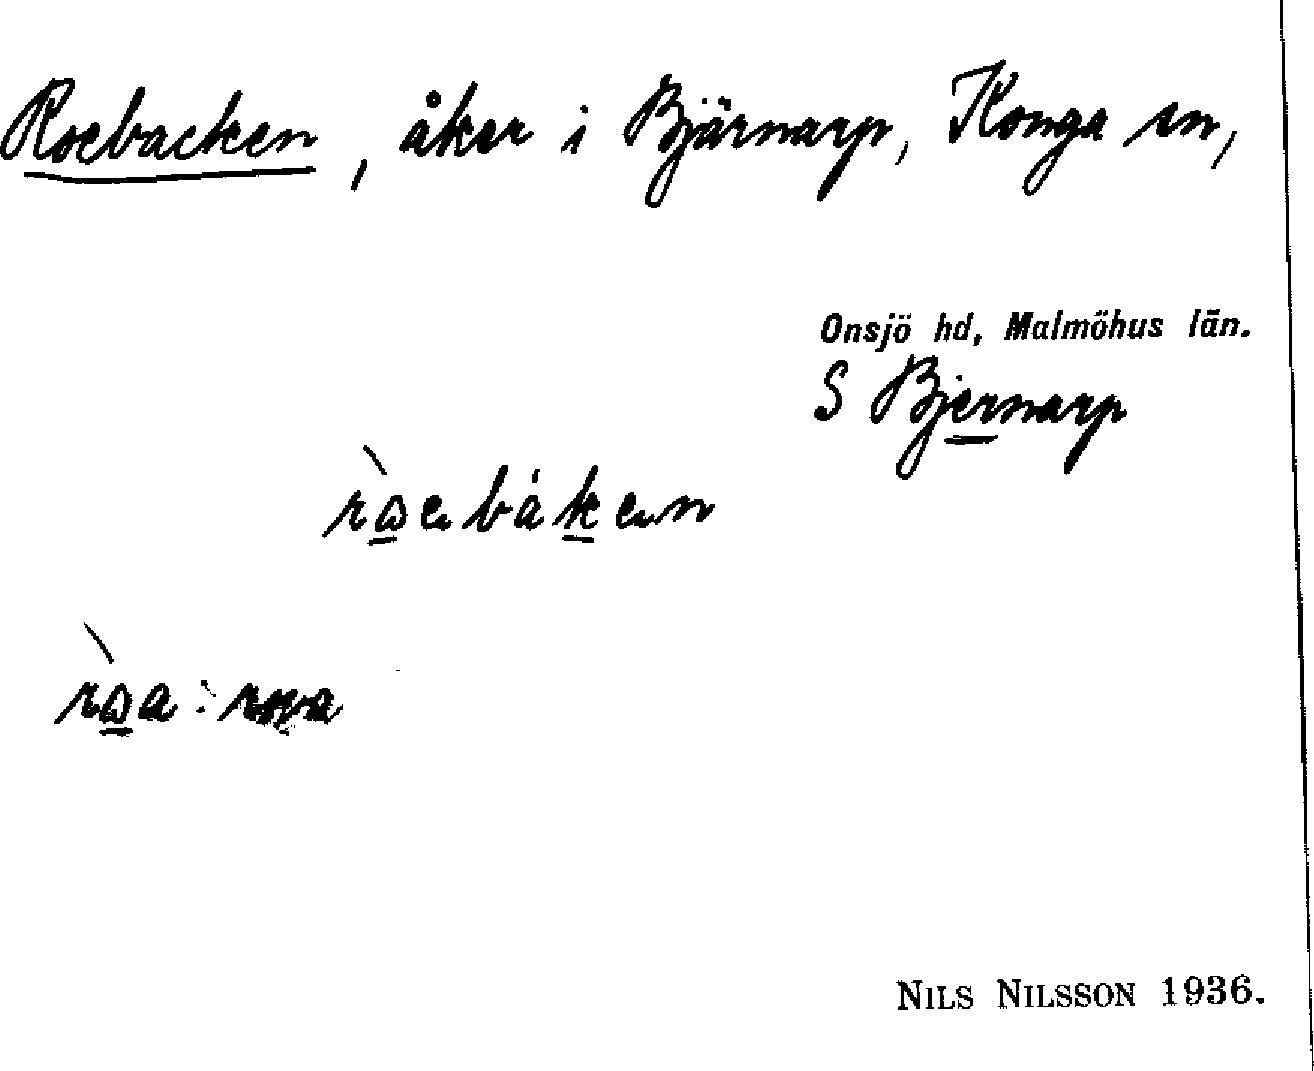 Roebacken, åker i Bjärnarp, Konga sn,
Onsjö hd, Malmöhus län.
S Bjernarp
ròebåken
ròa: rova
NILS NILSSON 1936.